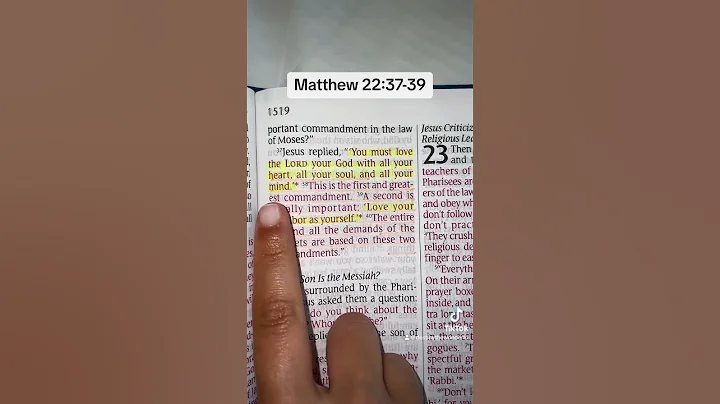 Matthew 22:37-39
1519
portant commandment in the law
of Moses?"
37Jesus replied, "'You must love
the LORD your God with all your
heart, all your soul, and all your
mind.'* 38This is the first and great-
est commandment. 39A second is
ally important: 'Love your
bor as yourself.'* 40The entire
nd all the demands of the
ets are based on these two
andments."
Son Is the Messiah?
surrounded by the Phari-
us asked them a question:
do you think about the
Who
he?"
son of
why
Jesus Criticiz
Religious Lea
23 Then
and t
teachers of
Pharisees are
ers of the law
and obey wh
don't follow
don't pract
They crush
religious de
finger to eas
"Everyth
On their arm
prayer boxe
inside, and
tra long tas
sit at the he
in the
gogues.
spectful gr
the market
'Rabbi.'*
"Don't l
TikTok